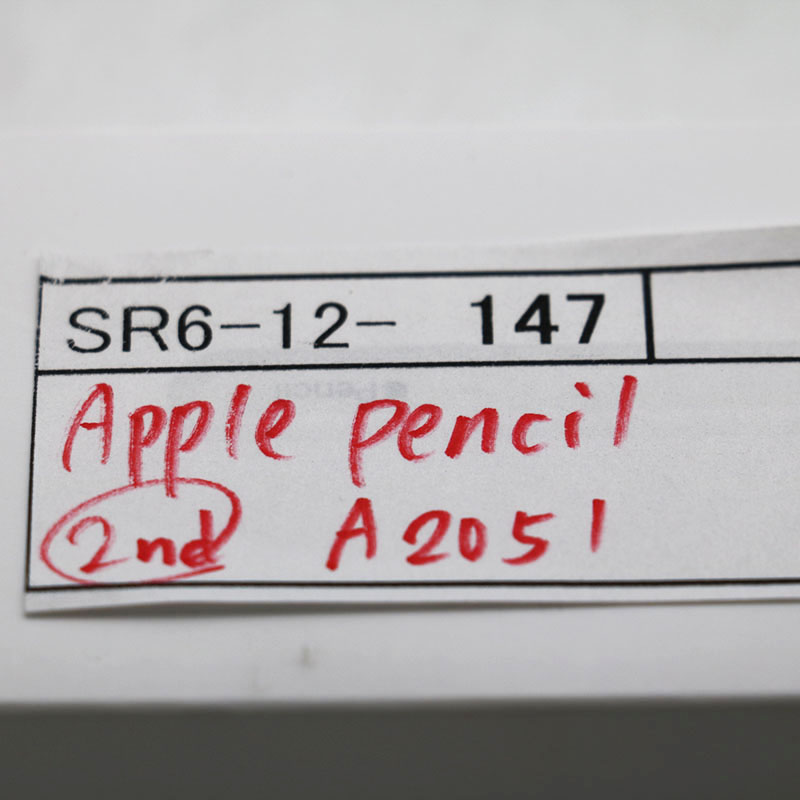 SR6-12- 147
Apple pencil
2nd A2051